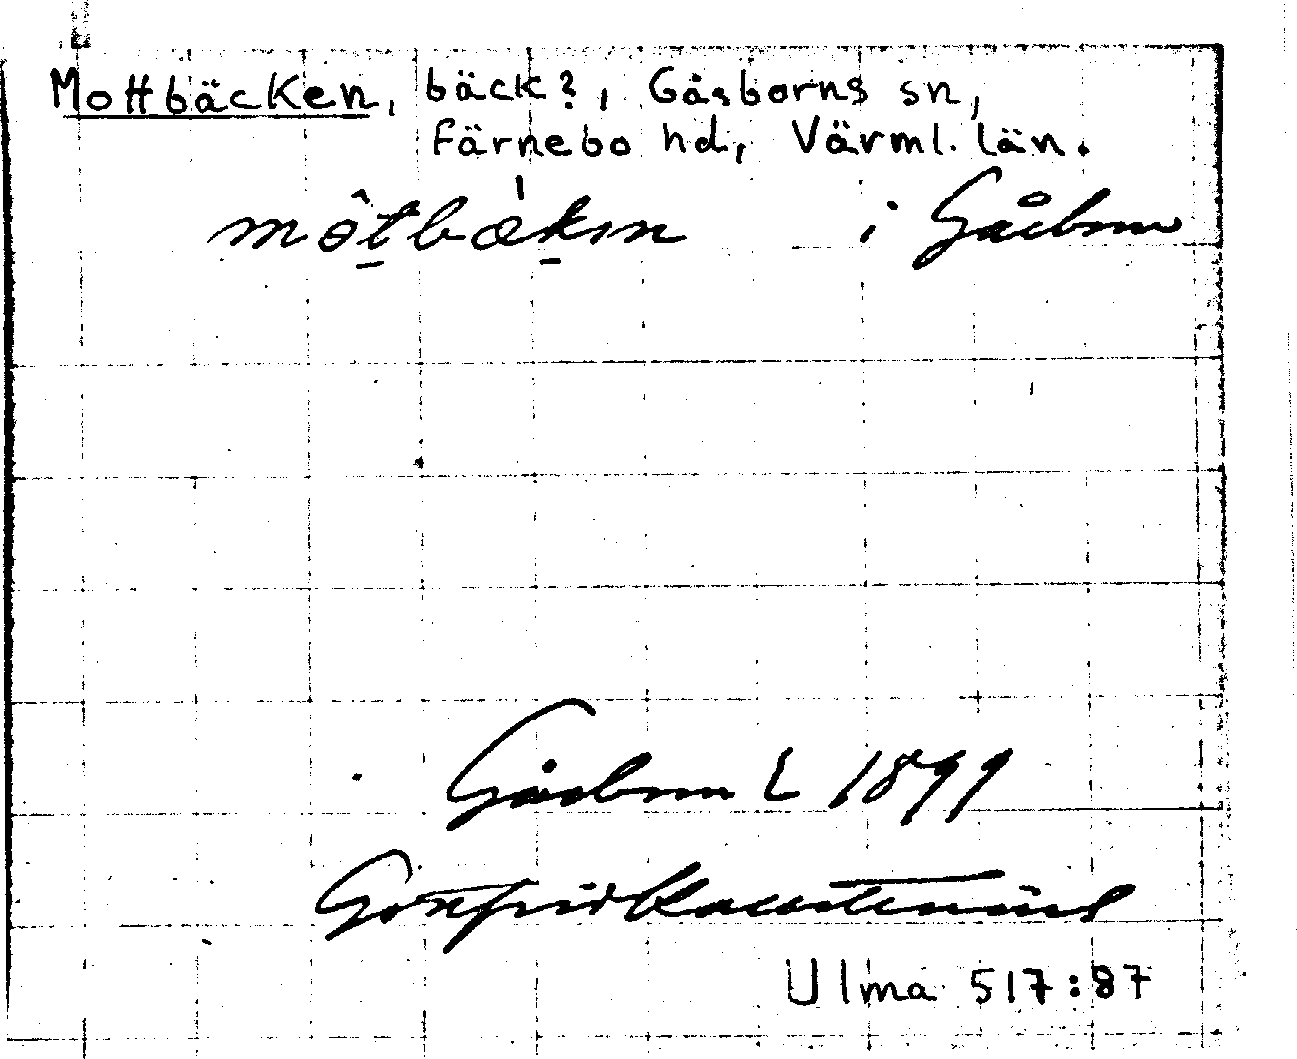 Mottbäcken, bäck?, Gåsborns sn,
Färnebo hd, Värml. län.
môt̠bæ̍k̠ın i Gåsborn
Gåsborn L 1899
Gottfrid Kallstenius
Ulma 517:87